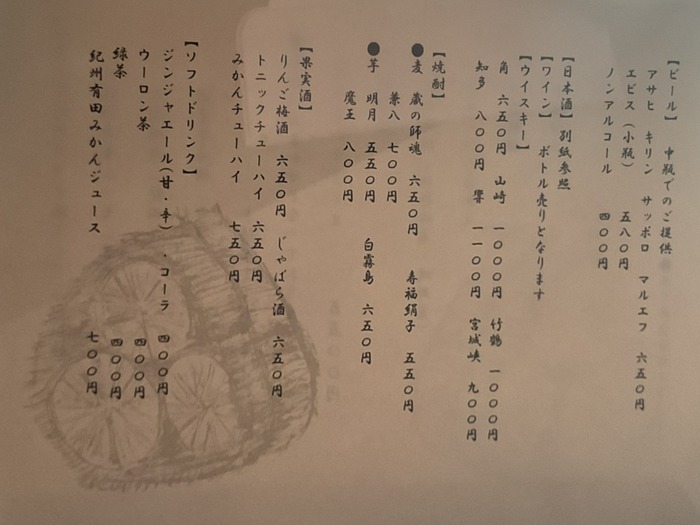 【ビール】 中瓶でのご提供
アサヒ キリン サッポロ マルエフ 六五〇円
エビス(小瓶) 五八〇円
ノンアルコール 四〇〇円
【日本酒】別紙参照
【ワイン】 ボトル売りとなります
【ウイスキー】
角 六五〇円 山崎 一〇〇〇円 竹鶴 一〇〇〇円
知多 八〇〇円 響 一一〇〇円 宮城峡 九〇〇円
【焼酎】
●麦 蔵の師魂 六五〇円 寿福絹子 五五〇円
兼八 七〇〇円
●芋 明月 五五〇円 白霧島 六五〇円
魔王 八〇〇円
【果実酒】
りんご梅酒 六五〇円 じゃばら酒 六五〇円
トニックチューハイ 六五〇円
みかんチューハイ 七五〇円
【ソフトドリンク】
ジンジャエール(甘・辛) ・コーラ 四〇〇円
ウーロン茶 四〇〇円
緑茶 四〇〇円
紀州有田みかんジュース 七〇〇円